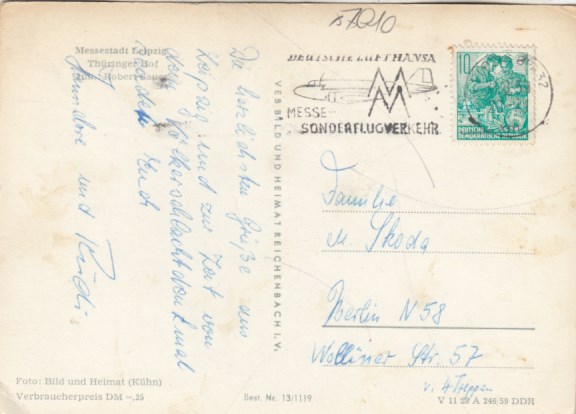 57210
Messestadt Leipzig
Thüringer Hof
Inh.: Robert Sauer
Die herzlichsten Grüße aus
Leipzig und zur Zeit vom
dem Völkerschlachtdenkmal
sendet Euch
und Rudi.
VEB BILD UND HEIMAT REICHENBACH I. V.
DEUTSCHE LUFTHANSA
MM
MESSE-
SONDERFLUGVERKEHR
10
DEUTSCHE
DEMOKRATISCHE REPUBLIK
Familie
M. Skoda
Berlin N 58
Wolliner Str. 57
v. 4 Treppen
Foto: Bild und Heimat (Kühn)
Verbraucherpreis DM -,25
Best. Nr. 13/1119
V 11 28 A 246/59 DDR